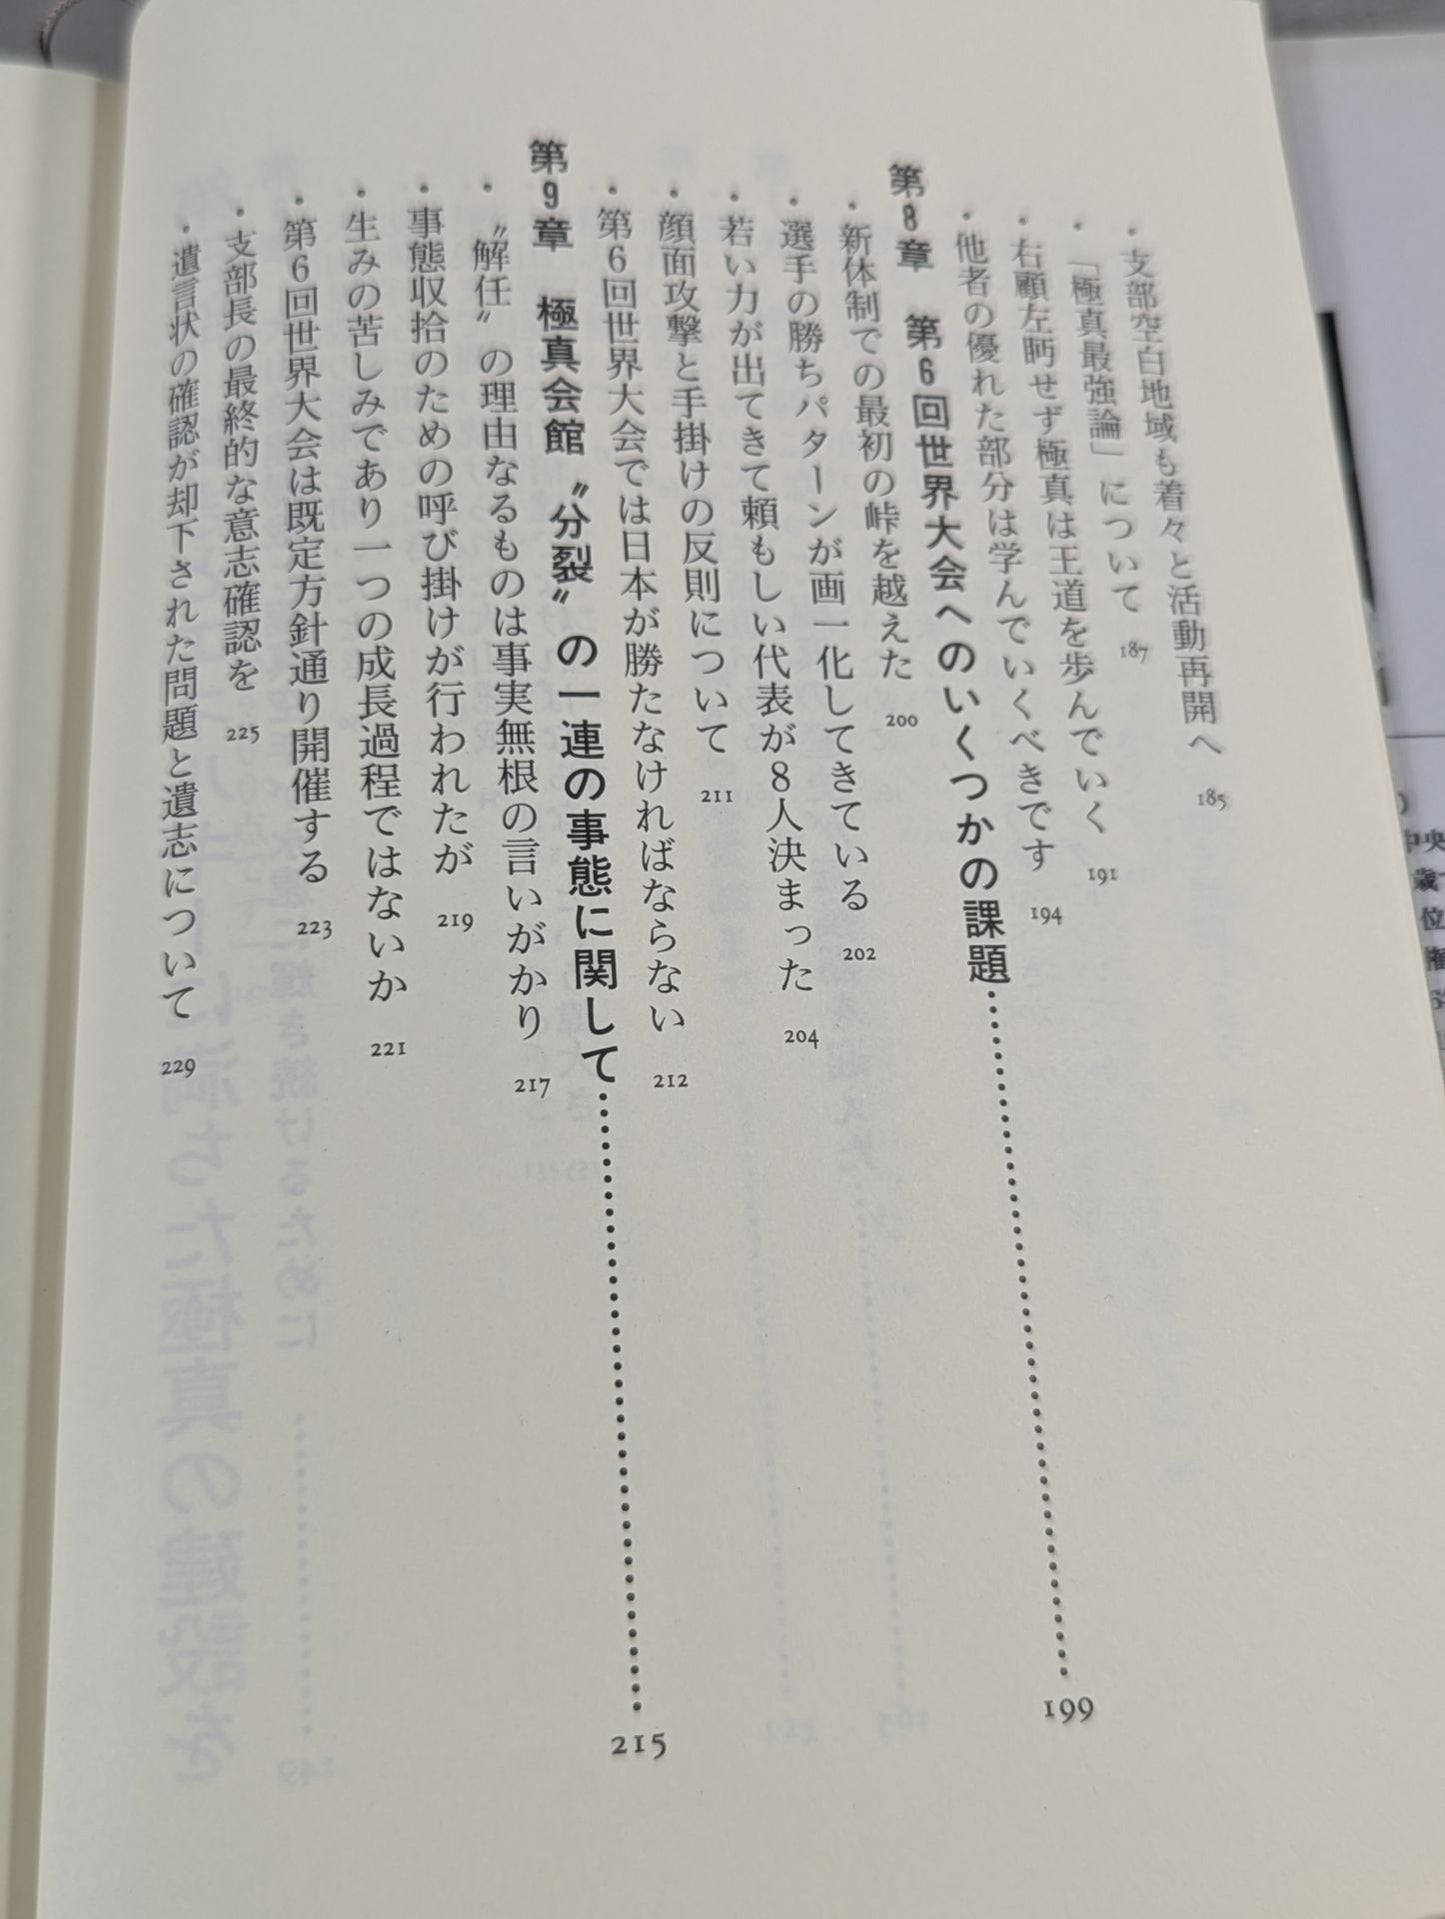 ・支部空白地域も着々と活動再開へ 185
・「極真最強論」について 187
・右顧左眄せず極真は王道を歩んでいく 191
・他者の優れた部分は学んでいくべきです 194
第8章 第6回世界大会へのいくつかの課題……………………199
・新体制での最初の峠を越えた 200
・選手の勝ちパターンが画一化してきている 202
・若い力が出てきて頼もしい代表が8人決まった 204
・顔面攻撃と手掛けの反則について 211
・第6回世界大会では日本が勝たなければならない 212
第9章 極真会館〝分裂〟の一連の事態に関して……………………215
・〝解任〟の理由なるものは事実無根の言いがかり 217
・事態収拾のための呼び掛けが行われたが 219
・生みの苦しみであり一つの成長過程ではないか 221
・第6回世界大会は既定方針通り開催する 223
・支部長の最終的な意志確認を 225
・遺言状の確認が却下された問題と遺志について 229